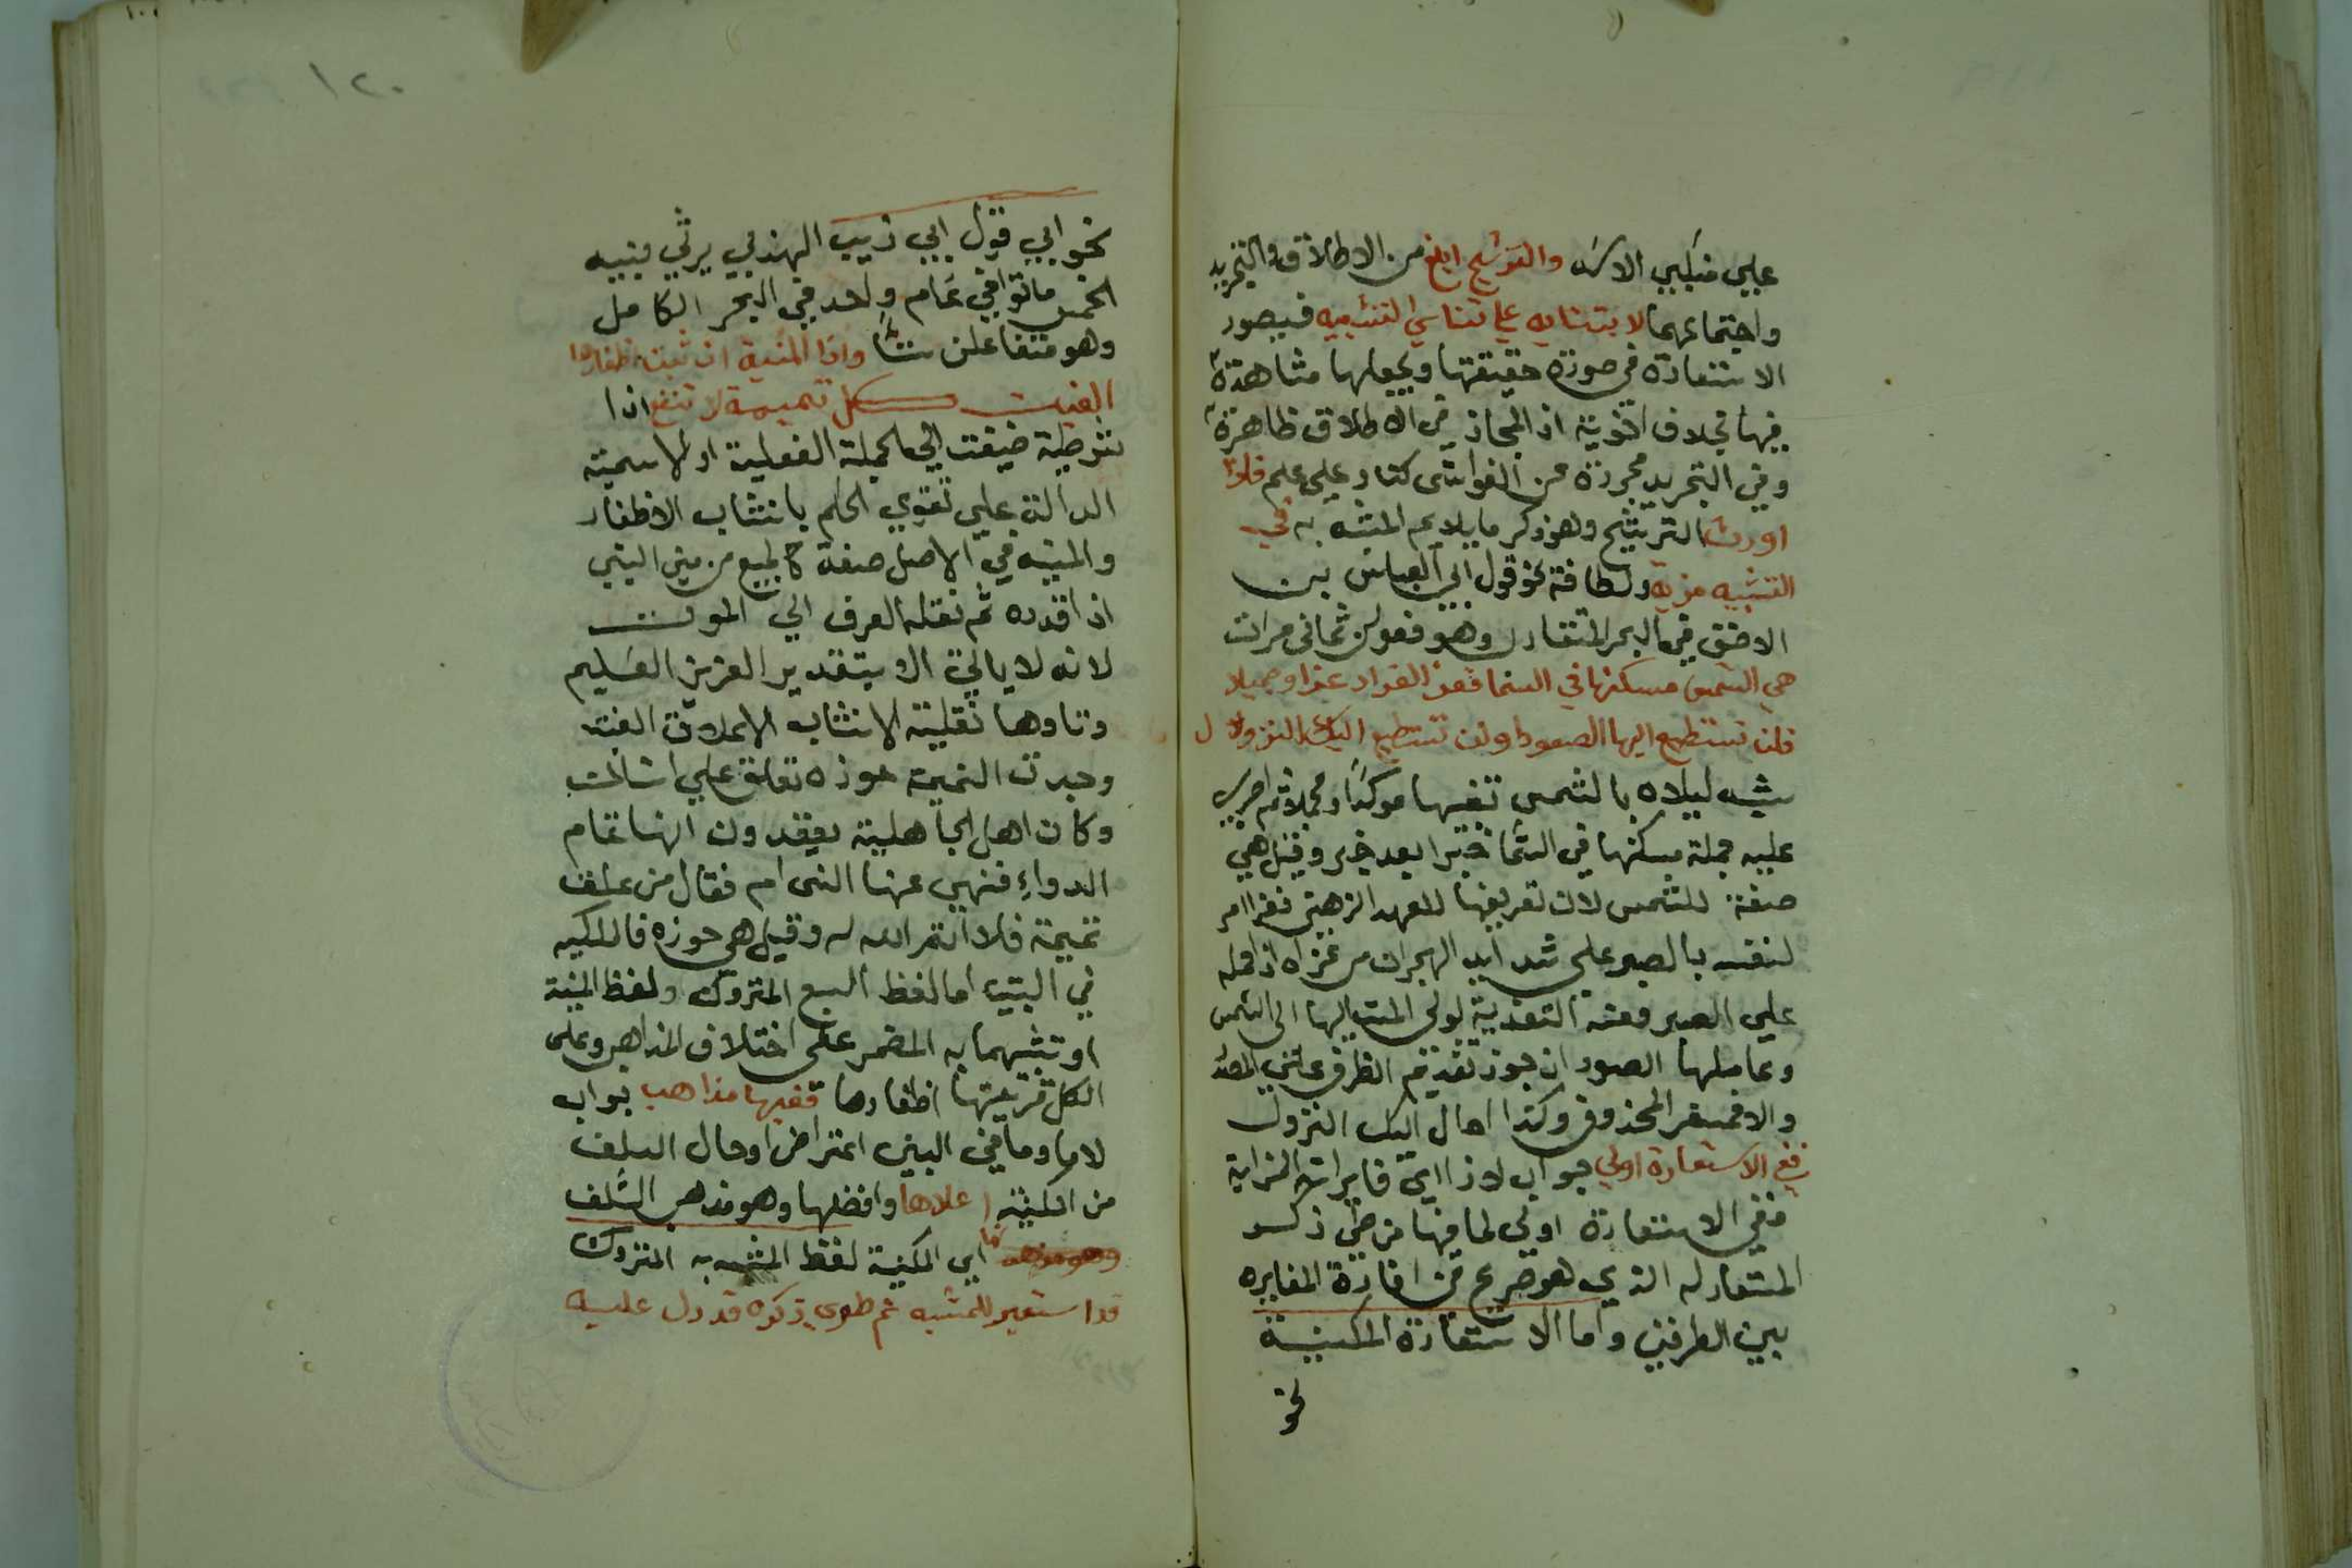 علي منكبي الاسد والترشيح ابلغ من الاطلاق والتجريد
واجتماعهما لابتنايه علي تناسي التشبيه فيصور
الاستعارة في صورة حقيقتها ويجعلها مشاهدة
فيها بخلاف اذ المجاز في الاطلاق ظاهرة
وفي التجريد مجردة عن الغواشي كنار علي علم فلذا
اورث الترشيح وهو ذكر ما يلايم المشبه به في
التشبيه مزية ولطافة نحو قول ابي العباس بن
الاحنف في البحر المتقارب وهو فعولن ثماني مرات
هي الشمس مسكنها في السما فعز الفواد عزا جميلا
فلن تستطيع اليها الصعودا ولن تستطيع اليك النزولا
شبه ليلاه بالشمس تشبيها موكدا ومجملا ثم اجري
عليه جملة مسكنها في السما خبرا بعد خبر وقيل هي
صفة للشمس لان تعريفها للعهد الذهني فعز امر
لنفسه بالصبر علي شدايد الهجران من عزاه اذا حمله
علي الصبر
وعاملها الصعود ان جوز تقديم الظرف علي المصدر
والا فمفسر المحذوف وكذا الحال اليك النزول
ففي الاستعارة اولي جواب لاذا اي
ففي الاستعارة اولي لما فيها من طي ذكر
المستعار له الذي هو صريح في افادة المغايرة
بين الطرفين واما الاستعارة المكنية
نحو
١٢٠
نحو ابي قول ابي ذيب الهذلي يرثي بنيه
الخمس ماتوا في عام واحد في البحر الكامل
وهو متفاعلن ستا واذا المنية انشبت اظفارها
الفيت كل تميمة لا تنفع اذا
شرطية ضيفت الي الجملة الفعلية او الاسمية
الدالة علي تقوي الحكم بانشاب الاظفار
والمنية في الاصل صفة من مني الشي
اذا قدره ثم نقله العرف الي الموت
لانه لا ياتي الا بتقدير العزيز العليم
وتاوها نقلية الانشاب الاعلاق الفيت
وجدت التميمة عوذه تعلق علي
وكان اهل الجاهلية يعتقدون انها تمام
الدواء فنهي عنها النبي ام فقال من علق
تميمة فلا اتم الله له وقيل هي خرزه فالمكنيه
في البيت اما لفظ السبع المتروك ولفظ المنية
او تشبيهما به المضمر علي اختلاف المذاهب وعلي
الكل قرينتها اظفارها ففيها مذاهب جواب
لاما وما في البين اعتراض او حال السلف
من المكنية اعلاها وافضلها وهو مذهب السلف
انها اي المكنية لفظ المشبه به المتروك
قد استعير للمشبه ثم طوي ذكره قد دل عليه